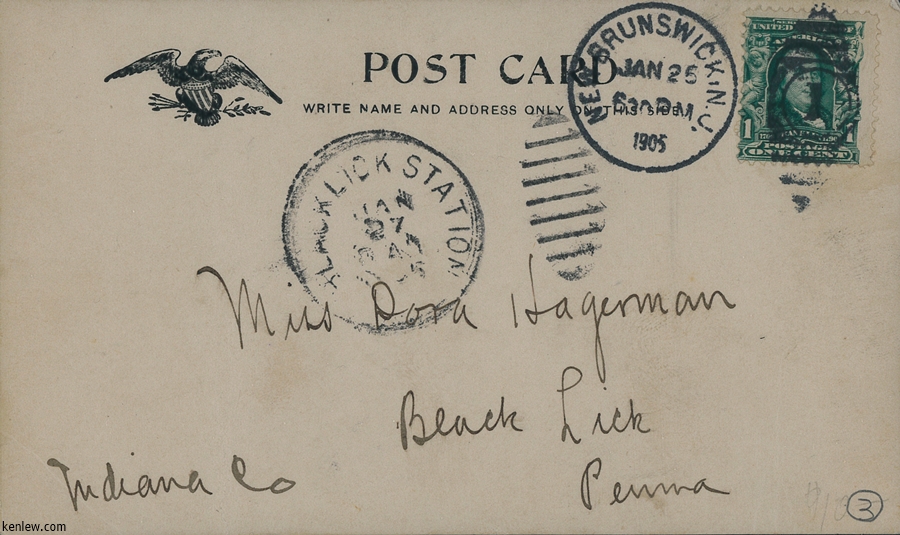 POST CARD
WRITE NAME AND ADDRESS ONLY ON THIS SIDE
NEW BRUNSWICK, N.J.
JAN 25
630 PM
1905
UNITED
1
ONE CENT
1
BLACKLICK STATION
JAN
27
Miss Dora Hagerman
Black Lick
Indiana Co
Penna
3
kenlew.com